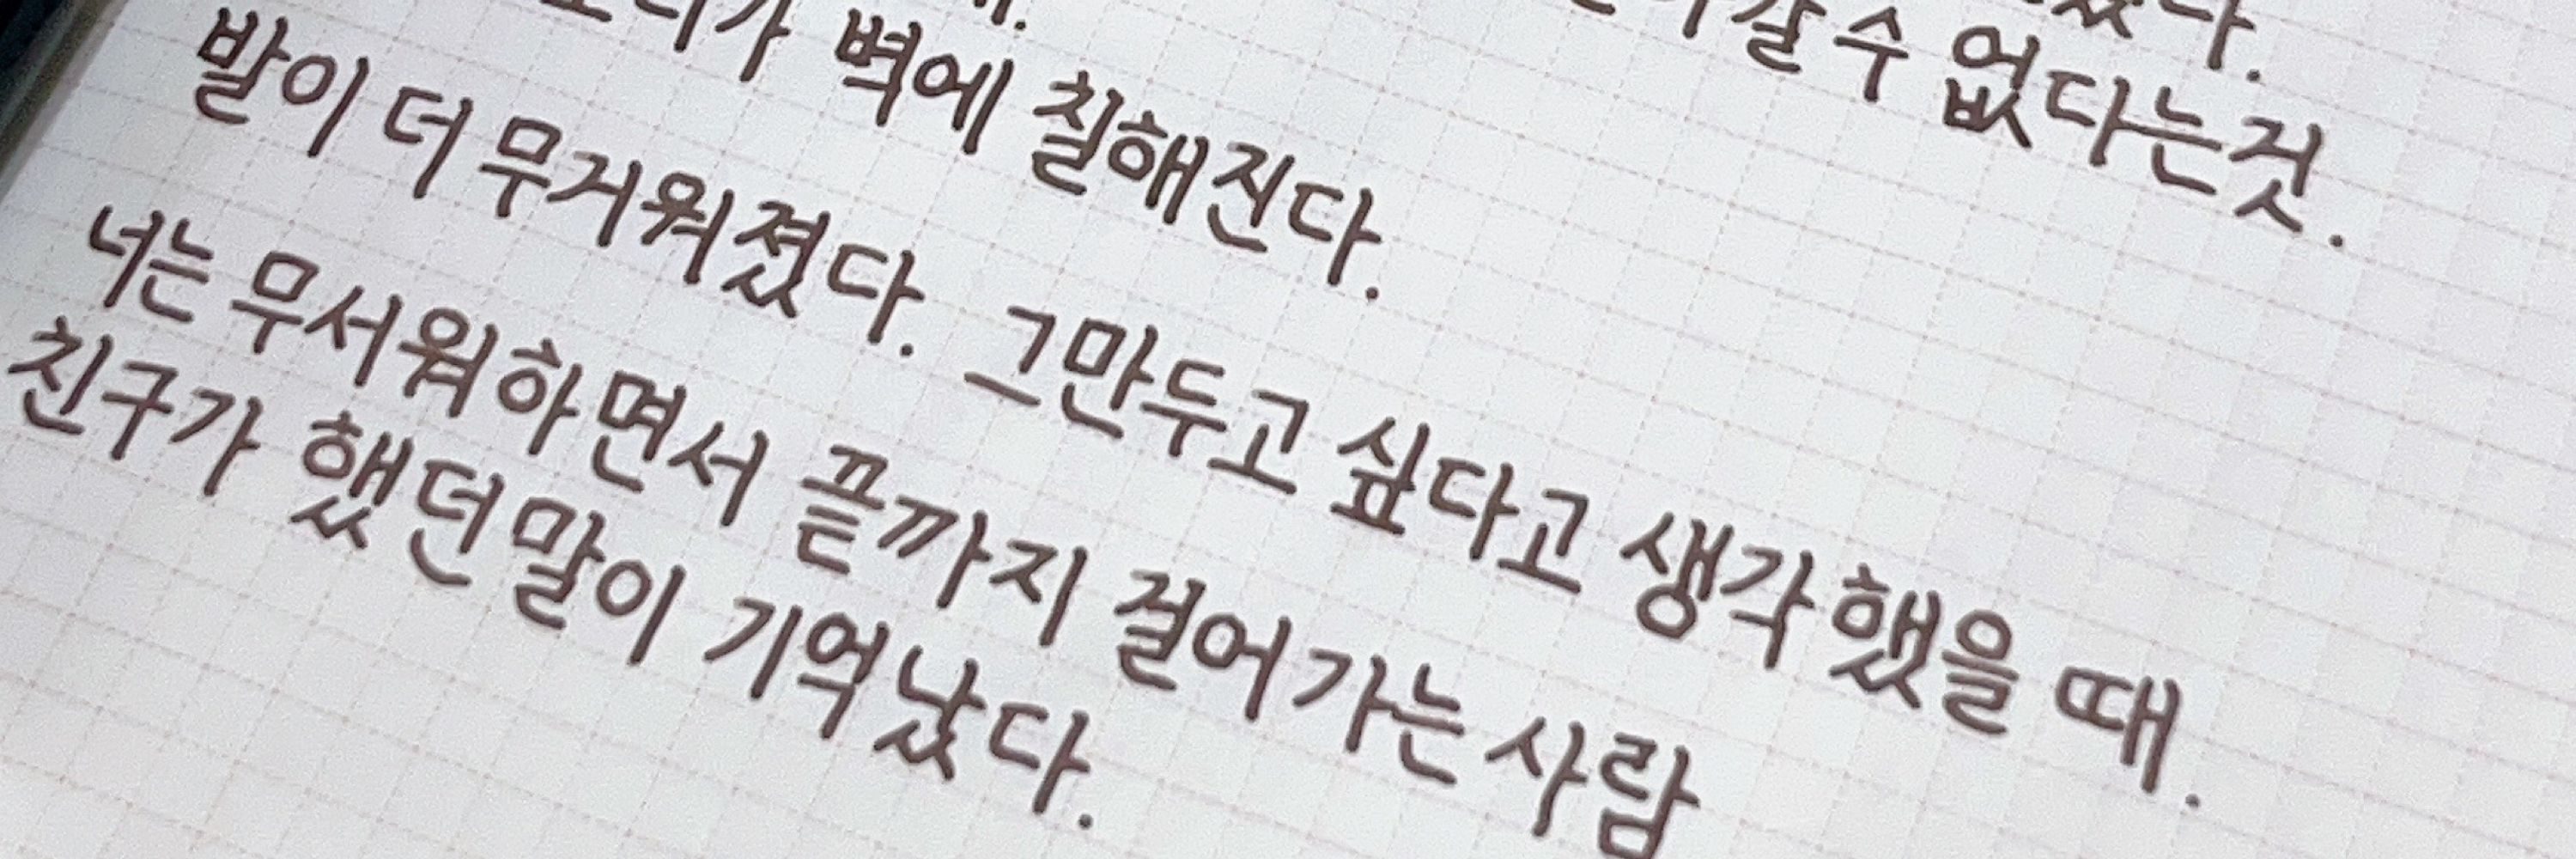 갈수 없다는것.
벽에 칠해진다.
발이 더 무거워졌다. 그만두고 싶다고 생각했을 때.
너는 무서워하면서 끝까지 걸어가는 사람
친구가 했던말이 기억났다.